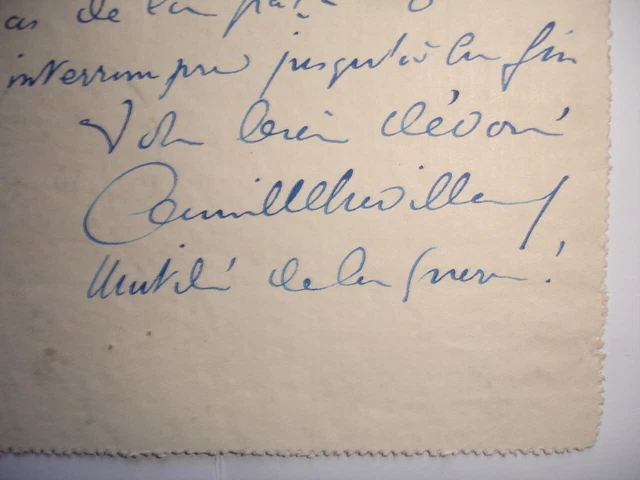 as de la
interrompu jusqu'à la fin
Votre bien dévoué
Camille Chevillard
Mutilé de la guerre !